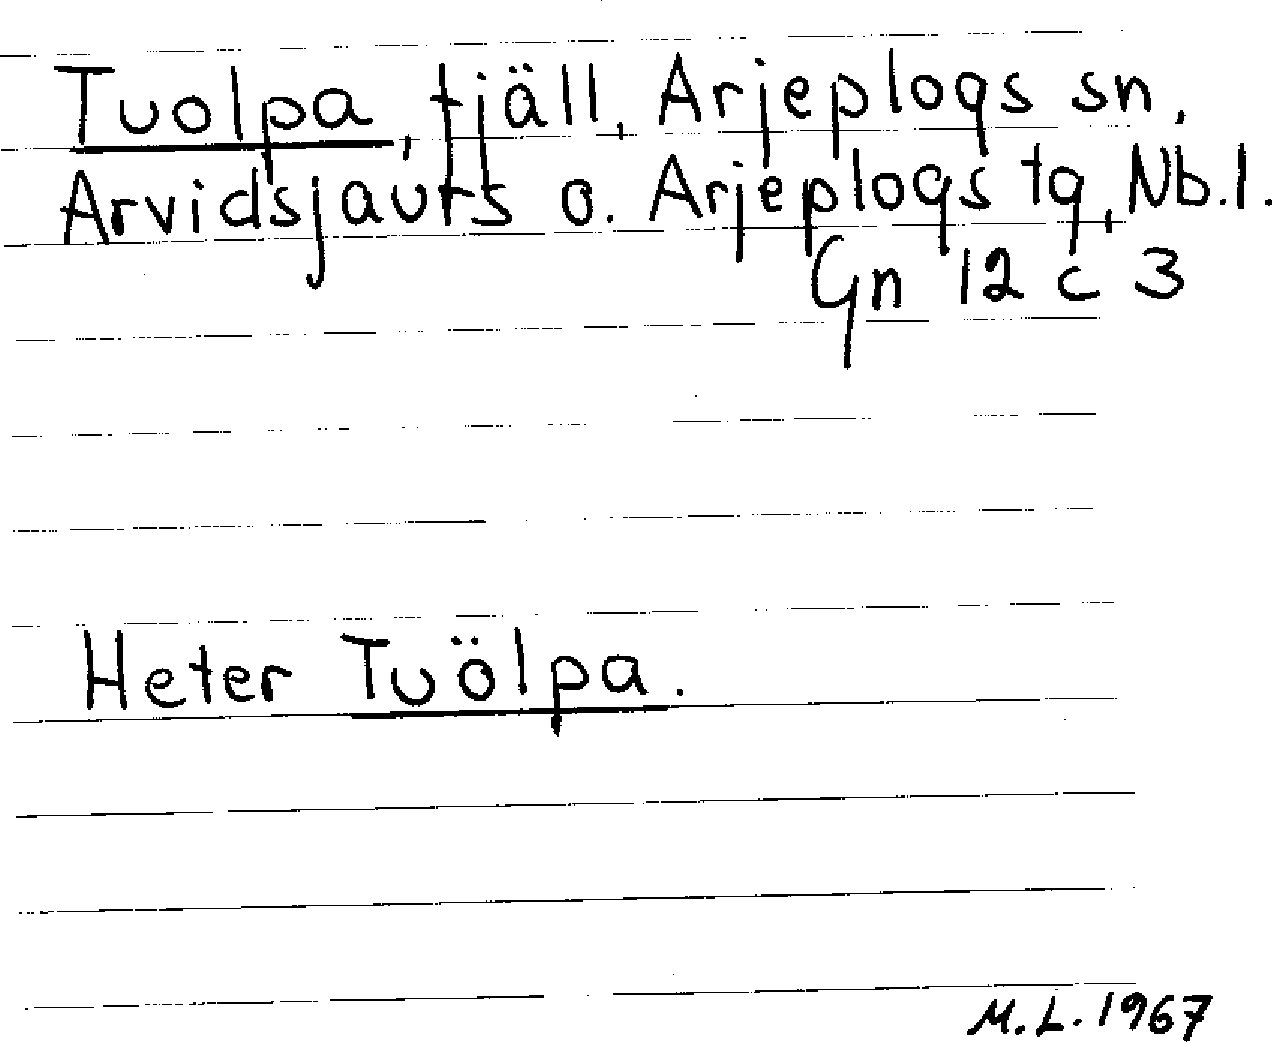 Tuolpa, fjäll, Arjeplogs sn,
Arvidsjaurs o. Arjeplogs tg, Nb.l.
Gn 12 c 3
Heter Tuölpa.
M.L. 1967